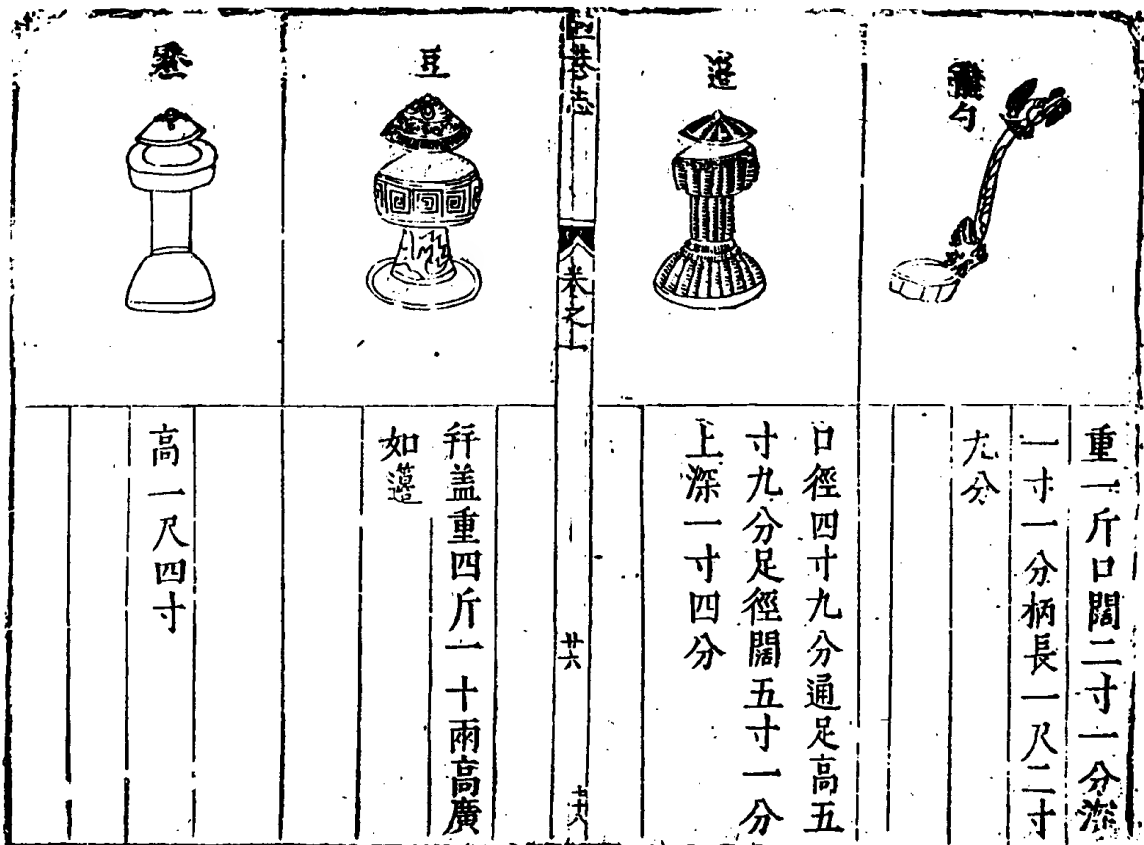 龍勺
重一斤口闊二寸一分深
一寸一分柄長一尺二寸
九分
籩
口徑四寸九分通足高五
寸九分足徑闊五寸一分
上深一寸四分
陋巷志
卷之一
廿六
豆
幷盖重四斤一十兩高廣
如籩
高一尺四寸